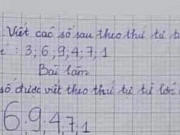 Viết các số sau theo thứ tự t
: 3; 6; 9; 4; 7; 1
Bài làm
số được viết theo thứ tự từ lớn
6; 9; 4; 7; 1